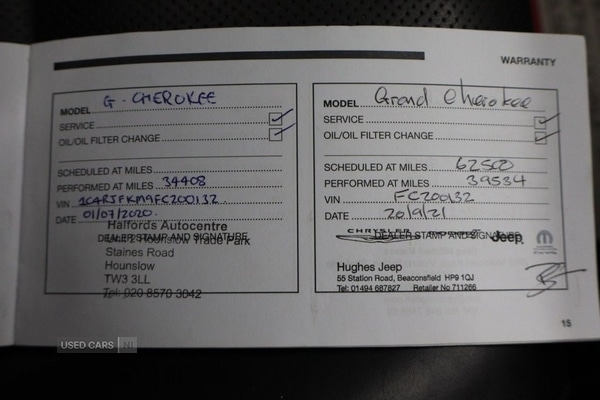 WARRANTY
MODEL G. CHEROKEE
SERVICE
OIL/OIL FILTER CHANGE
SCHEDULED AT MILES
PERFORMED AT MILES 34408
VIN 1C4RJFKM9FC200132
DATE 01/07/2020
DEALER STAMP AND SIGNATURE
Halfords Autocentre
Unit 2 Hounslow Trade Park
Staines Road
Hounslow
TW3 3LL
Tel: 020 8570 3042
MODEL Grand Cherokee
SERVICE
OIL/OIL FILTER CHANGE
SCHEDULED AT MILES 62500
PERFORMED AT MILES 39534
VIN FC200132
DATE 20/9/21
DEALER STAMP AND SIGNATURE
CHRYSLER Jeep
Hughes Jeep
55 Station Road, Beaconsfield HP9 1QJ
Tel: 01494 687827 Retailer No 711266
15
USED CARS NI